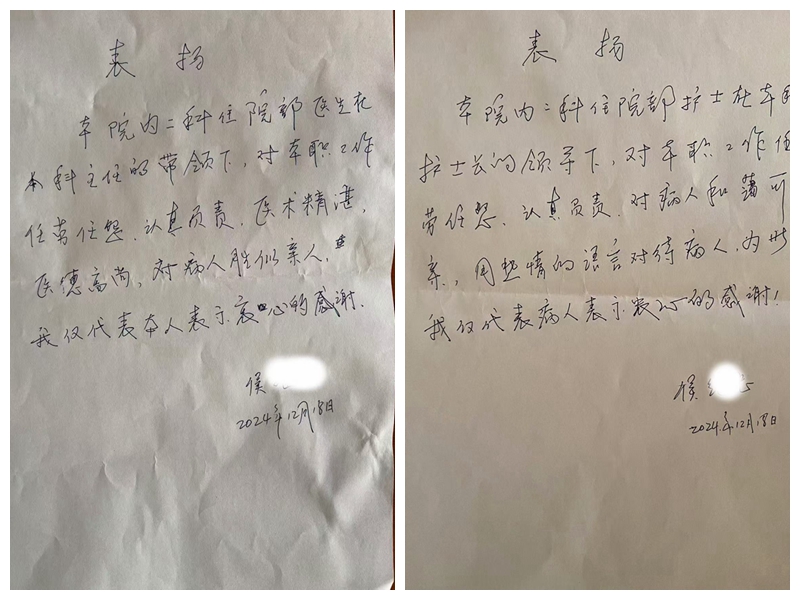 表扬
本院内二科住院部医生在
本科主任的带领下，对本职工作
任劳任怨、认真负责、医术精湛，
医德高尚，对病人胜似亲人，
我仅代表本人表示衷心的感谢.
侯
2024年12月18日
表扬
本院内二科住院部护士在本
护士长的领导下，对本职工作任
劳任怨、认真负责、对病人和蔼可
亲，用热情的语言对待病人，为此
我仅代表病人表示衷心的感谢！
侯
2024.年12月18日